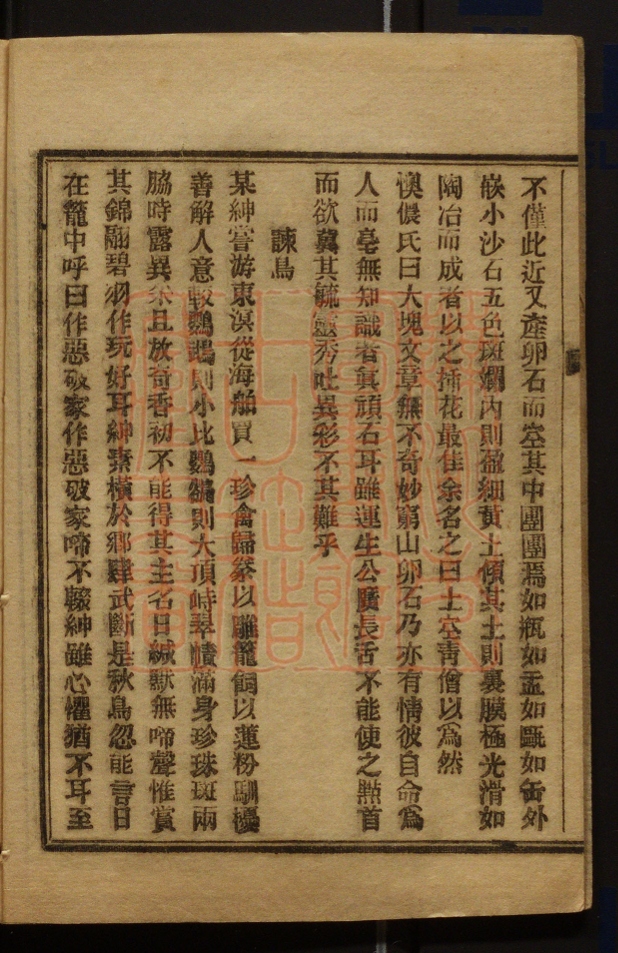 不僅此近又產卵石而空其中團團焉如瓶如盂如甌如缶外
嵌小沙石五色斑斕內則盈細黃土傾其土則裏膜極光滑如
陶冶而成者以之揷花最佳余名之曰土空靑僧以爲然
懊儂氏曰大塊文章無不奇妙窮山卵石乃亦有情彼自命爲
人而毫無知識者眞頑石耳雖運生公廣長舌不能使之㸃首
而欲冀其毓靈秀吐異彩不其難乎
諫鳥
某紳嘗游東溟從海舶買一珍禽歸豢以雕籠飼以蓮粉馴擾
善解人意較鸚鵡則小比鸚鵒則大頂峙翠幘滿身珍珠斑兩
脇時露異采且放奇香初不能得其主名日緘默無啼聲惟賞
其錦翮碧羽作玩好耳紳素橫於鄉肆武斷是秋鳥忽能言日
在籠中呼曰作惡破家作惡破家啼不輟紳雖心懼猶不耳至